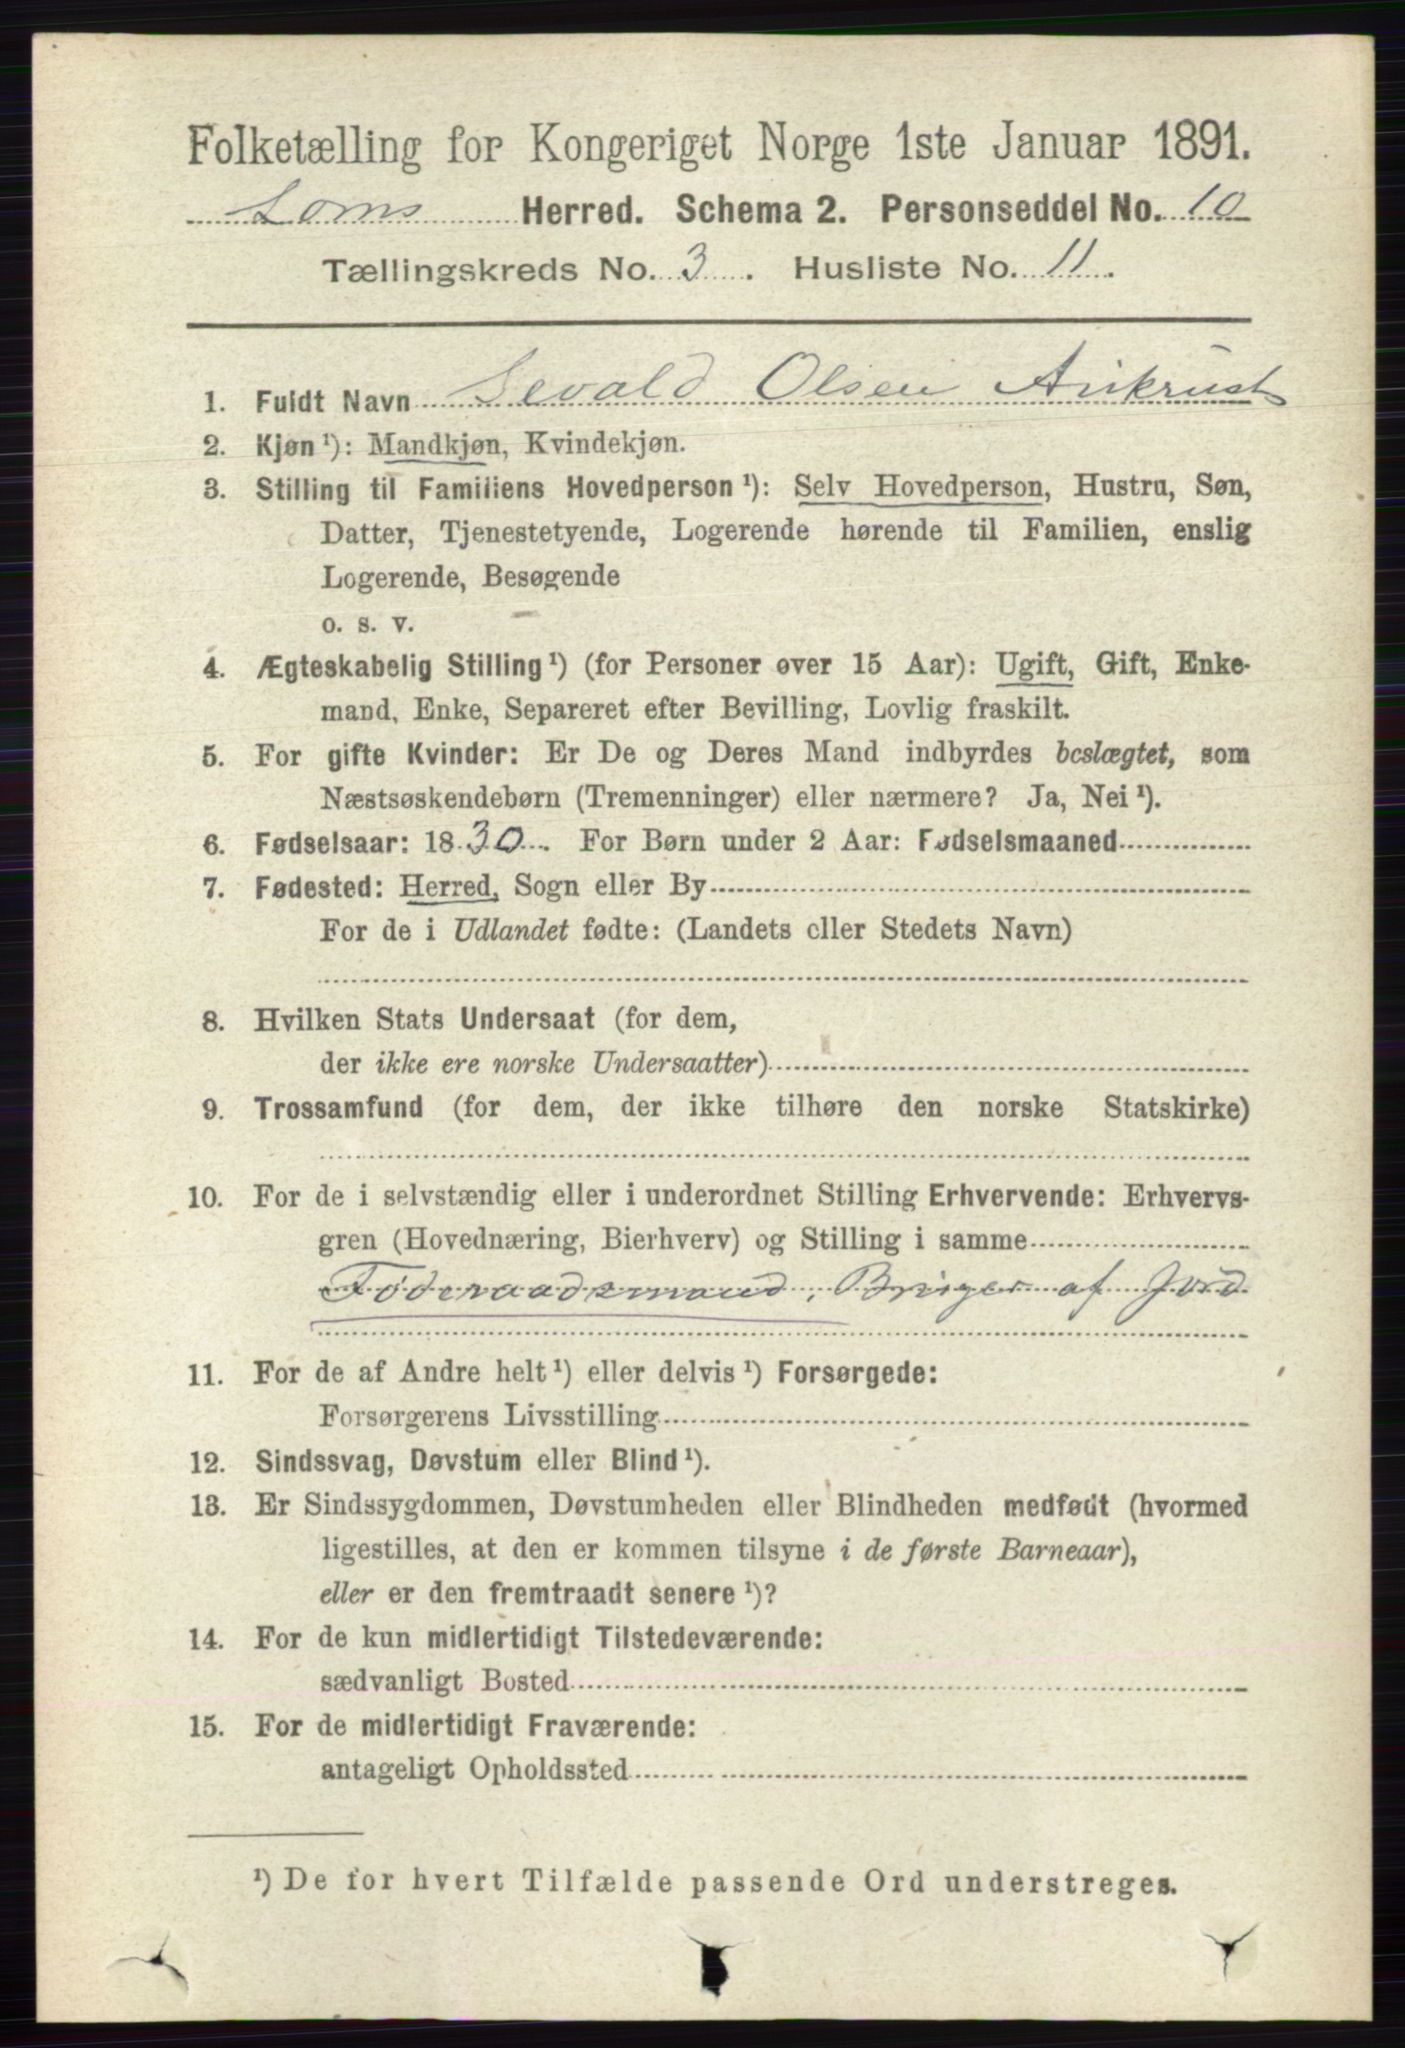 Folketælling for Kongeriget Norge 1ste Januar 1891.
Loms Herred. Schema 2. Personseddel No. 10
Tællingskreds No. 3. Husliste No. 11.
1. Fuldt Navn Sevald Olsen Aukrust
2. Kjøn ¹): Mandkjøn, Kvindekjøn.
3. Stilling til Familiens Hovedperson ¹): Selv Hovedperson, Hustru, Søn,
Datter, Tjenestetyende, Logerende hørende til Familien, enslig
Logerende, Besøgende
o. s. v.
4. Ægteskabelig Stilling ¹) (for Personer over 15 Aar): Ugift, Gift, Enke-
mand, Enke, Separeret efter Bevilling, Lovlig fraskilt.
5. For gifte Kvinder: Er De og Deres Mand indbyrdes beslægtet, som
Næstsøskendebørn (Tremenninger) eller nærmere? Ja, Nei ¹).
6. Fødselsaar: 1830. For Børn under 2 Aar: Fødselsmaaned
7. Fødested: Herred, Sogn eller By
For de i Udlandet fødte: (Landets eller Stedets Navn)
8. Hvilken Stats Undersaat (for dem,
der ikke ere norske Undersaatter)
9. Trossamfund (for dem, der ikke tilhøre den norske Statskirke)
10. For de i selvstændig eller i underordnet Stilling Erhvervende: Erhvervs-
gren (Hovednæring, Bierhverv) og Stilling i samme
Føderaadsmand, Bruger af Jord
11. For de af Andre helt ¹) eller delvis ¹) Forsørgede:
Forsørgerens Livsstilling
12. Sindssvag, Døvstum eller Blind ¹).
13. Er Sindssygdommen, Døvstumheden eller Blindheden medfødt (hvormed
ligestilles, at den er kommen tilsyne i de første Barneaar),
eller er den fremtraadt senere ¹)?
14. For de kun midlertidigt Tilstedeværende:
sædvanligt Bosted
15. For de midlertidigt Fraværende:
antageligt Opholdssted
¹) De for hvert Tilfælde passende Ord understreges.